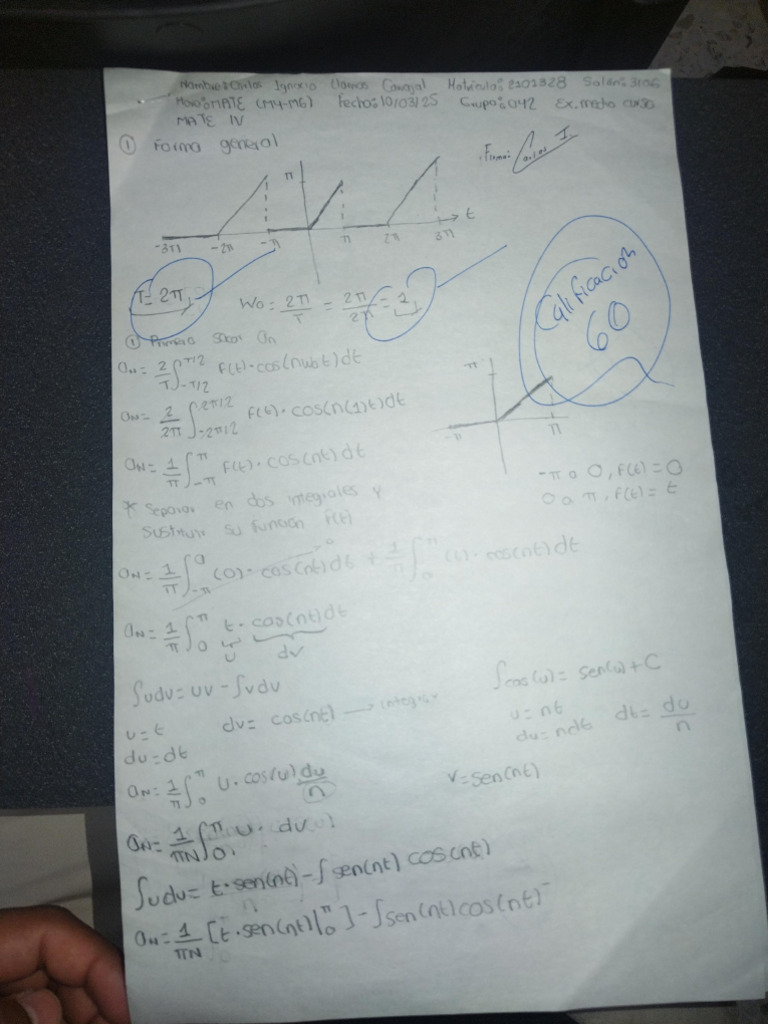 Nombre: Carlos Ignacio Llamas Matricula: 2101328 Salón: 3106
Hora: MATE (M4-M6) Fecha: 10/03/25 Grupo: 042 Ex. medio curso
MATE IV
① Forma general
Firma: Carlos I.
π
-3π -2π -π π 2π 3π t
T = 2π
Wo = 2π/T = 2π/2π = 1
Calificacion
60
① Primero sacar an
an = 2/T ∫_{-T/2}^{T/2} f(t)·cos(nwot)dt
an = 2/2π ∫_{-2π/2}^{2π/2} f(t)·cos(n(1)t)dt
an = 1/π ∫_{-π}^{π} f(t)·cos(nt)dt
π
-π π
-π a 0, f(t) = 0
0 a π, f(t) = t
* Separar en dos integrales y
sustituir su función f(t)
an = 1/π ∫_{-π}^{0} (0)·cos(nt)dt + 1/π ∫_{0}^{π} (t)·cos(nt)dt
an = 1/π ∫_{0}^{π} t·cos(nt)dt
u dv
∫udv = uv - ∫vdu
∫cos(u) = sen(u) + C
u = t dv = cos(nt) → integrar
u = nt
du = ndt dt = du/n
du = dt
an = 1/π ∫_{0}^{π} u·cos(u) du/n
v = sen(nt)
an = 1/πN ∫_{0}^{π} u·dv
∫udv = t·sen(nt) - ∫sen(nt) cos(nt)
n
an = 1/πN [t·sen(nt)|_{0}^{π}] - ∫sen(nt)cos(nt)